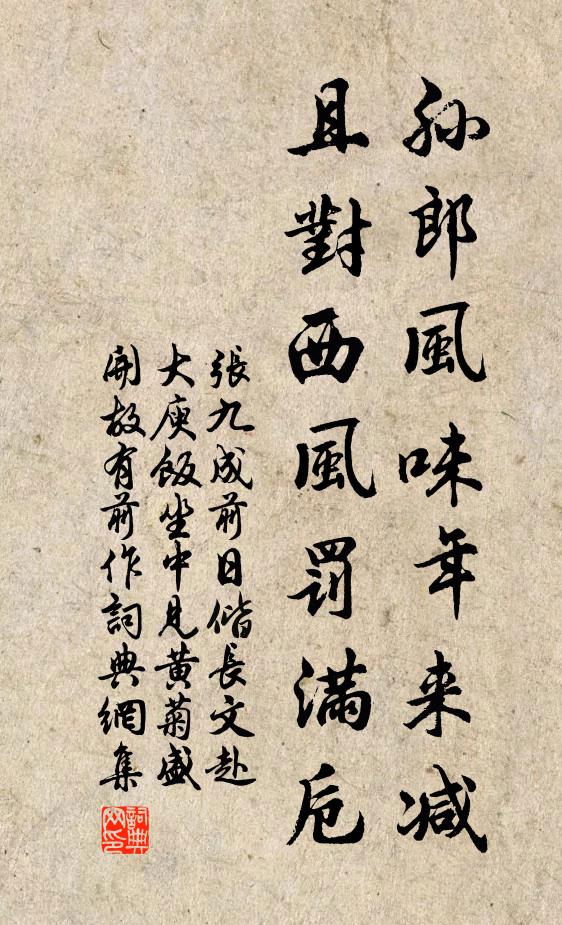 孙郎風味年来减
且對西風罰满卮
張九成前日偕長文赴
大庾飯坐中見黄菊盛
開故有前作詞典網集
詞典網印